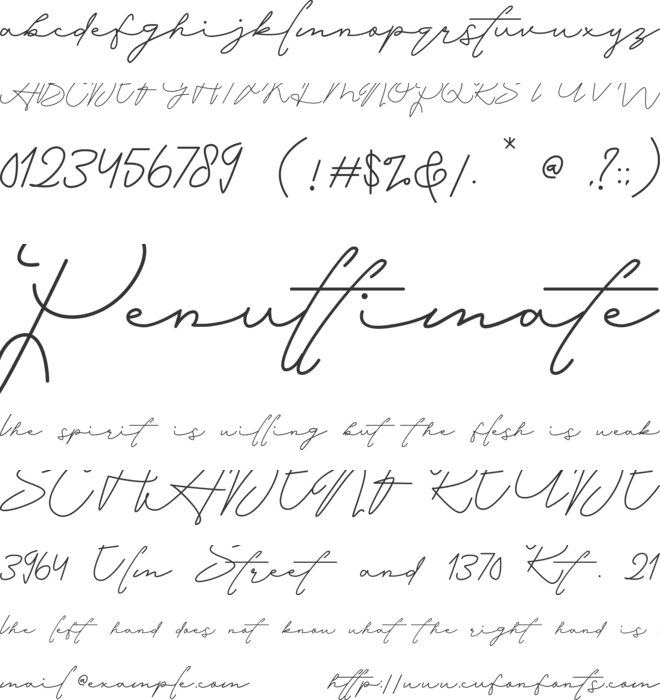 abcdefghijklmnopqrstuvwxyz
ABCDEFGHIJKLMNOPQRSTUVW
0123456789 (!#$%&/. * @ ,?:;)
Penultimate
The spirit is willing but the flesh is weak
SCHADENFREUDE
3964 Elm Street and 1370 Rt. 21
The left hand does not know what the right hand is
mail@example.com http://www.cufonfonts.com